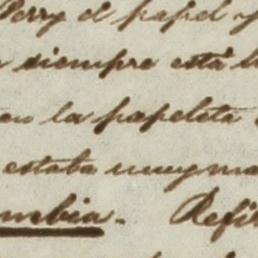 Perry el papel y
siempre está
la papeleta
estaba muy ma
mbia. Refi